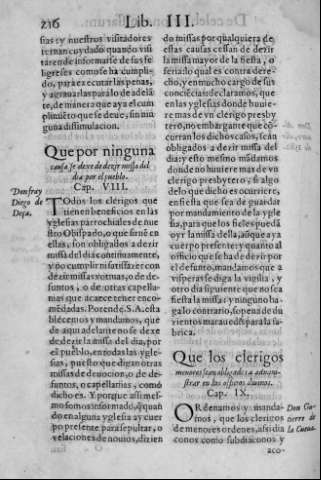 216 Lib. III.
sias: y nuestros visitadores
ternan cuydado quando visi
taren de informarse de sus fe
ligreses como se ha cumpli-
do, para executar las penas,
y agrauarlas para lo de adelā
te, de manera que aya el cum
plimiēto que se deue, sin nin
guna dissimulacion.
Que por ninguna
causa se dexe de dezir missa del
dia por el pueblo.
Cap. VIII.
Don fray
Diego de
Deça.
TOdos los clerigos que
tienen beneficios en las
yglesias parrochiales de nue
stro Obispado, o que siruē en
ellas, son obligados a dezir
missa del dia continuamente,
y no cumplir ni satisfazer con
dezir missas votiuas, o de de-
funtos, o de otras capella-
nias que acaece tener enco-
mēdadas. Porende. S. A. esta
blecemos y mandamos, que
de aqui adelante no se dexe
de dezir la missa del dia, por
el pueblo, en todas las ygle-
sias, puesto que digan otras
missas de deuocion, o de de-
funtos, o capellanias, como
dicho es. Y porque assi mes-
mo somos informado, q̄ quan
do en alguna yglesia ay cuer
po presente para sepultar, o
velaciones de nouios, dizien
do missas por qualquiera de
estas causas cessan de dezir
la missa mayor de la fiesta, o
feria: lo qual es contra dere-
cho, y en mucho cargo de sus
conciēcias: declaramos, que
en las yglesias donde huuie-
re mas de vn clerigo presby
tero, no embargante que cō-
curran los dichos casos, sean
obligados a dezir missa del
dia: y esto mesmo mādamos
donde no huuiere mas de vn
clerigo presbytero, si algo
delo que dicho es ocurriere,
en fiesta que sea de guardar
por mandamiento de la ygle
sia, para que los fieles pueda
oyr la missa della, aūque aya
cuerpo presente: y quanto al
officio que se ha de dezir por
el defunto, mandamos que a
visperas se diga la vigilia, y
otro dia siguiente que no sea
fiesta la missa: y ninguno ha-
ga lo contrario, so pena de du
zientos marauedis para la fa-
brica.
Que los clerigos
menores sean obligados a admini-
strar en los officios diuinos.
Cap. IX.
Don Gu-
tierre de
la Cueua.
ORdenamos y manda-
mos, que los clerigos
de menores ordenes, assi dia
conos como subdiaconos y
aco-